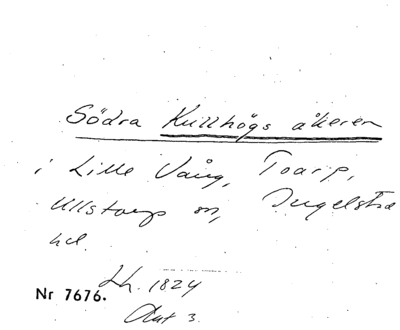 Södra Kullhögs åkeren
i Lille Vång, Toarp,
Ullstorps sn, Ingelstad
hd.
Lh. 1824
Nr 7676.
Akt 3.